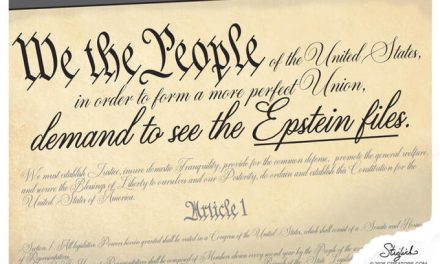 We the People of the United States,
in order to form a more perfect Union,
demand to see the Epstein files.
We must establish Justice, insure domestic Tranquility, provide for the common defense, promote the general welfare,
and secure the Blessings of Liberty to ourselves and our Posterity, do ordain and establish this Constitution for the
United States of America.
Article 1
Section 1. All legislative Powers herein granted shall be vested in a Congress of the United States, which shall consist of a Senate and House
of Representatives.